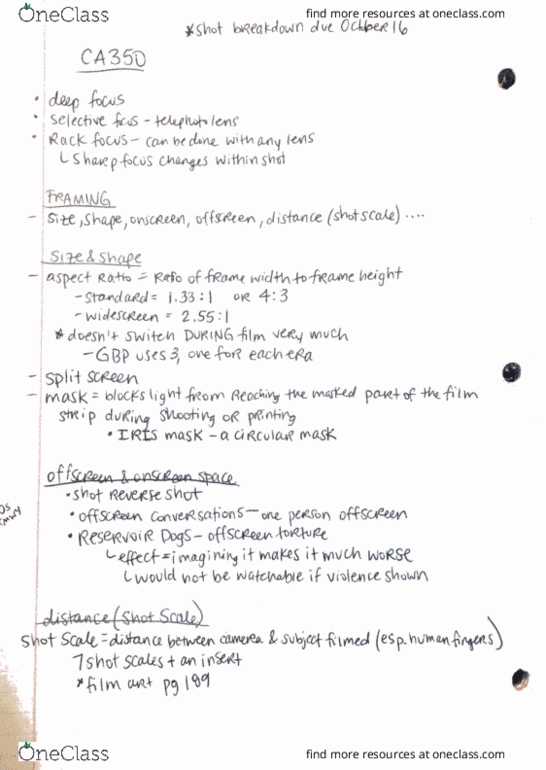 OneClass
find more resources at oneclass.com
*Shot breakdown due October 16
CA350
• deep focus
• Selective focus - telephoto lens
• Rack focus - can be done with any lens
└ Sharp focus changes within shot
FRAMING
- Size, Shape, onscreen, offscreen, distance (shot scale) ....
Size & Shape
- aspect Ratio = Ratio of frame width to frame height
- Standard = 1.33:1 OR 4:3
- widescreen = 2.55:1
* doesn't switch DURING film very much
- GBP uses 3, one for each era
- Split screen
- mask = blocks light from Reaching the masked part of the film
strip during shooting or printing
• IRIS mask - a circular mask
offscreen & onscreen space
• Shot Reverse Shot
• offscreen conversations - one person offscreen
• Reservoir Dogs - offscreen torture
└ effect = imagining it makes it much worse
└ would not be watchable if violence shown
distance (Shot Scale)
Shot Scale = distance between camera & subject filmed (esp. human fingers)
7 shot scales + an insert
* film art pg 189
OneClass
find more resources at oneclass.com